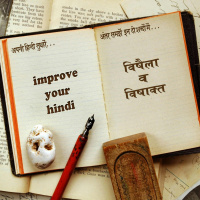 अपनी हिन्दी सुधारें...
improve
your
hindi
अंतर समझें इन शब्दों में...
विषैला
व
विषाक्त